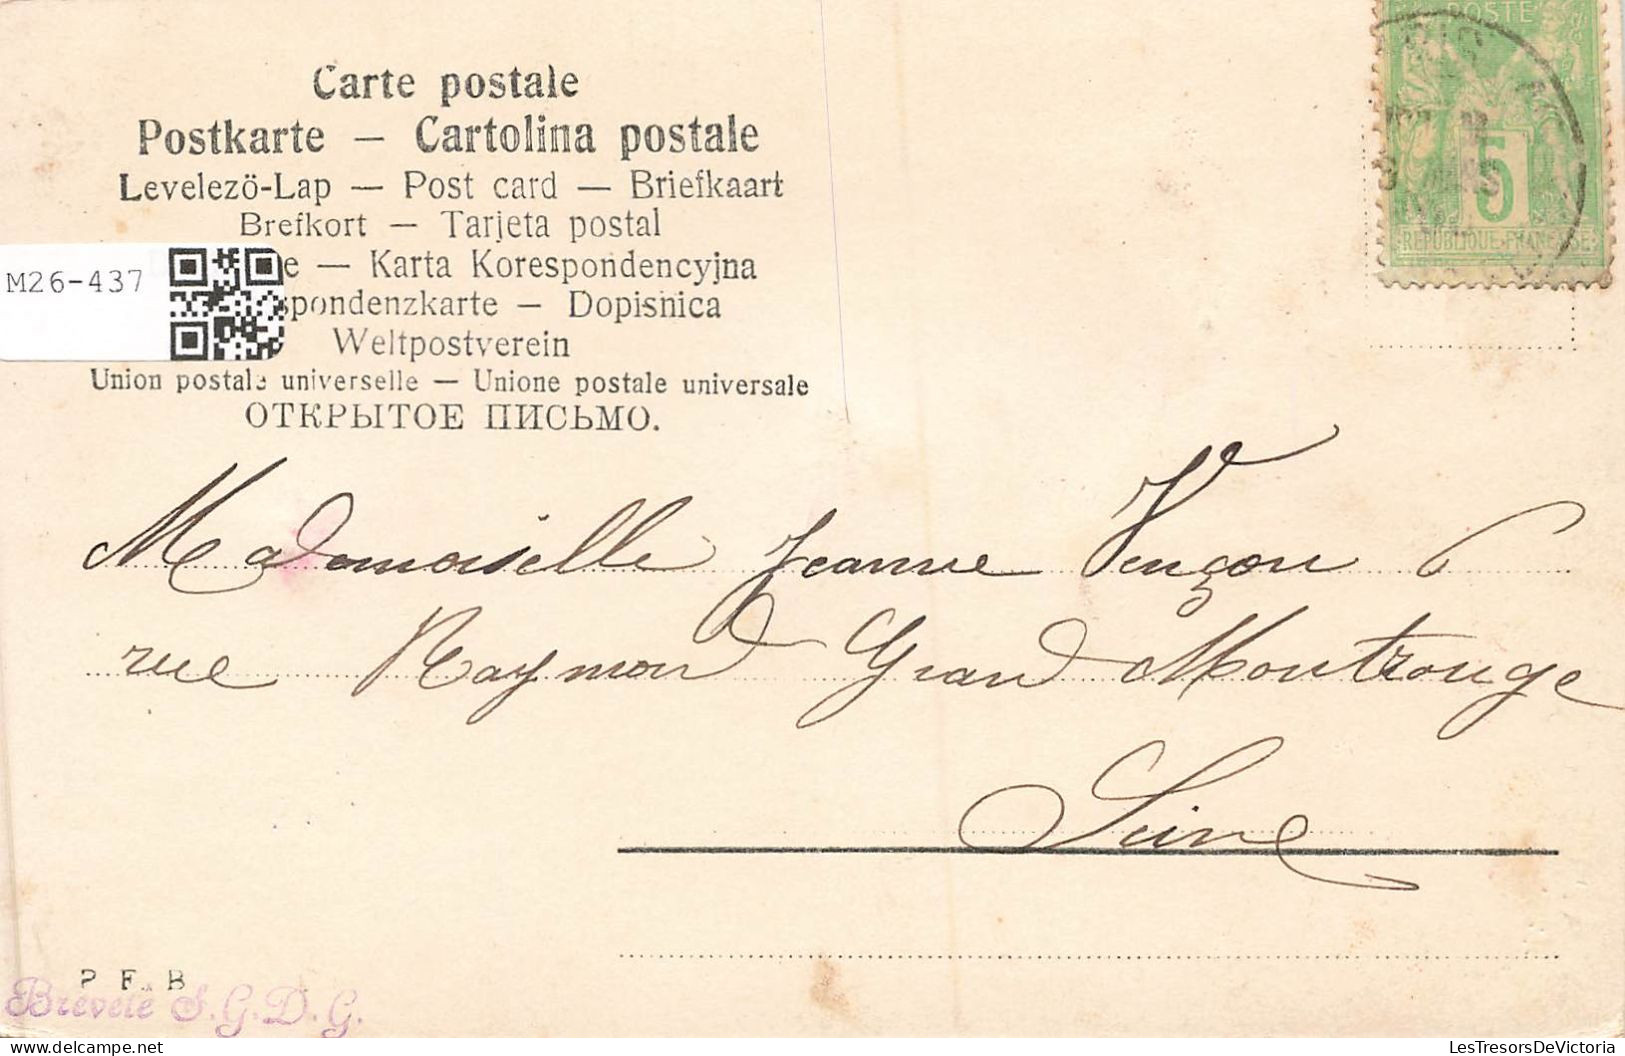 Carte postale
Postkarte — Cartolina postale
Levelezö-Lap — Post card — Briefkaart
Brefkort — Tarjeta postal
e — Karta Korespondencyjna
spondenzkarte — Dopisnica
Weltpostverein
Union postale universelle — Unione postale universale
ОТКРЫТОЕ ПИСЬМО.
M26-437
POSTE
5
REPUBLIQUE FRANÇAISE
Mademoiselle Jeanne Vençon 6
rue Raymond Grand Montrouge
Seine
P. F. B
Breveté S.G.D.G.
LesTresorsDeVictoria
www.delcampe.net